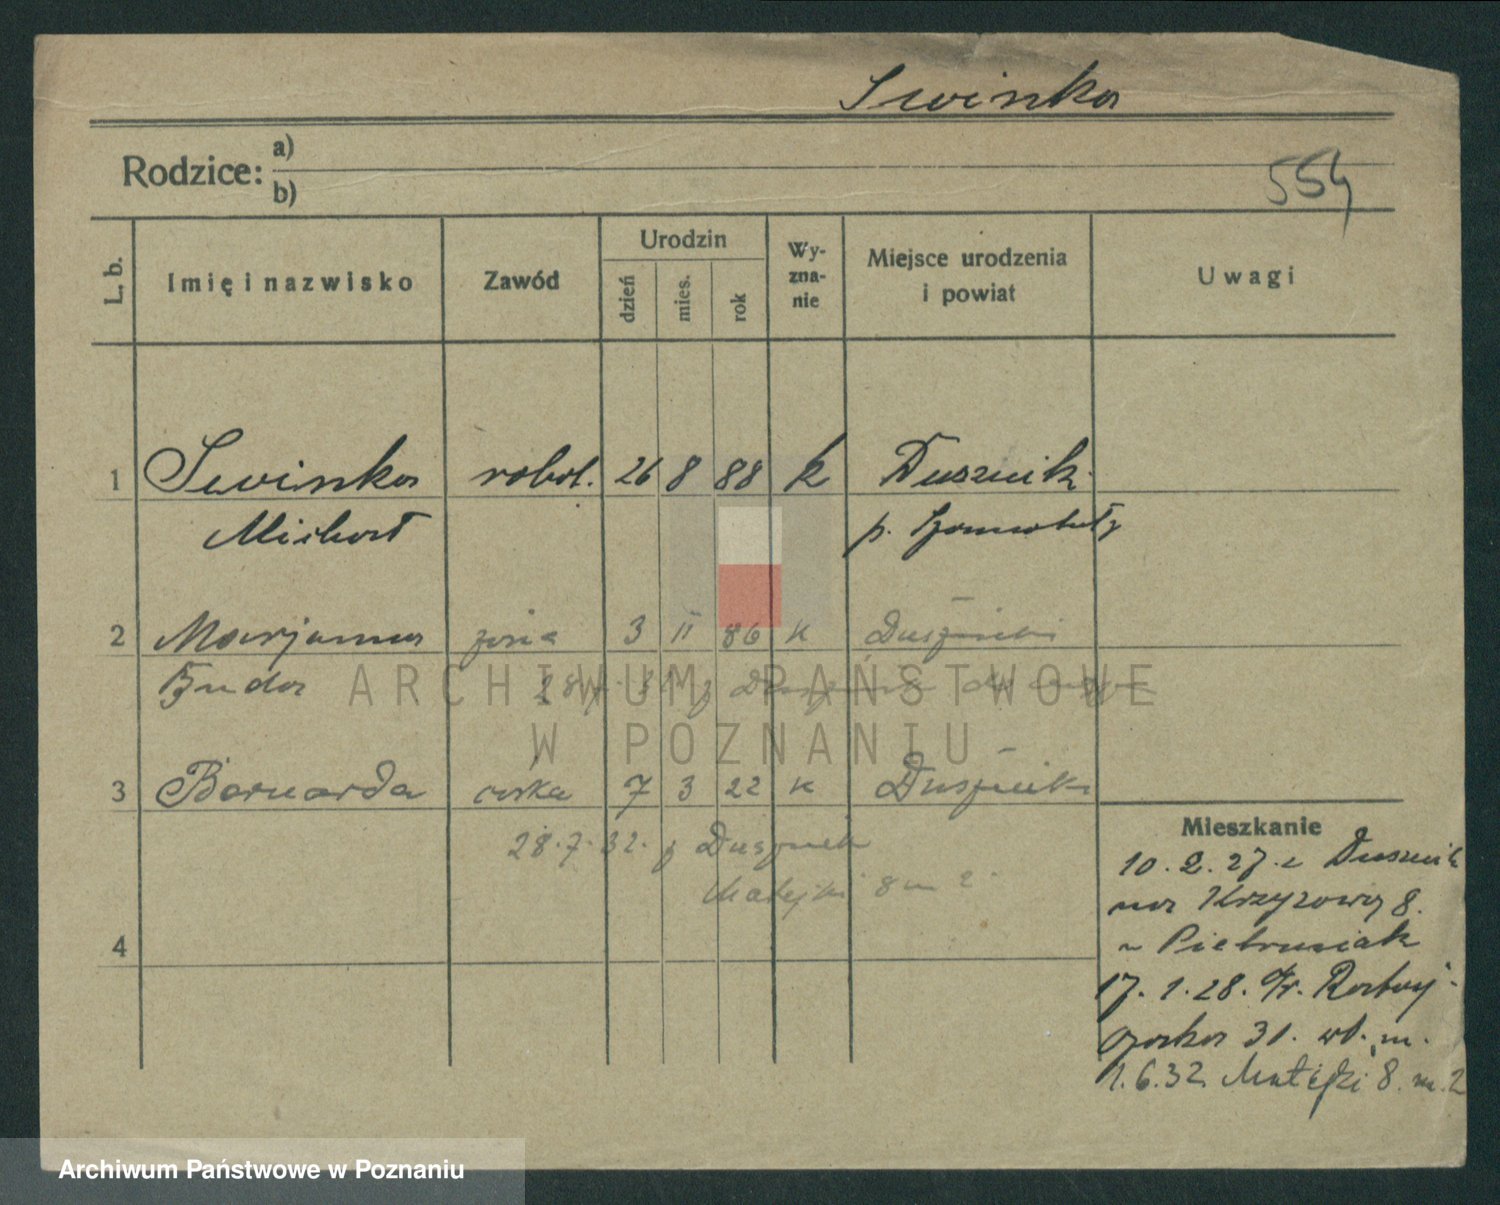 Swinka
Rodzice: a)
b)
554
L. b.
Imię i nazwisko
Zawód
Urodzin
dzień
mies.
rok
Wy-
zna-
nie
Miejsce urodzenia
i powiat
Uwagi
1 Swinka robot. 26 8 88 k Dusznik
Michał p. Szamotuły
2 Marjanna żona 3 II 86 k Duszniki
Buda
28 7 z
3 Bernarda córka 7 3 22 k Duszniki
28.7.32. z Dusznik
Matejki 8 m 2
4
Mieszkanie
10.2.27. z Dusznik
na Krzyżową 8.
Pietrusiak
17.1.28.
31. wł. m.
1.6.32 Matejki 8. m. 2
ARCHIWUM PAŃSTWOWE
W POZNANIU
Archiwum Państwowe w Poznaniu